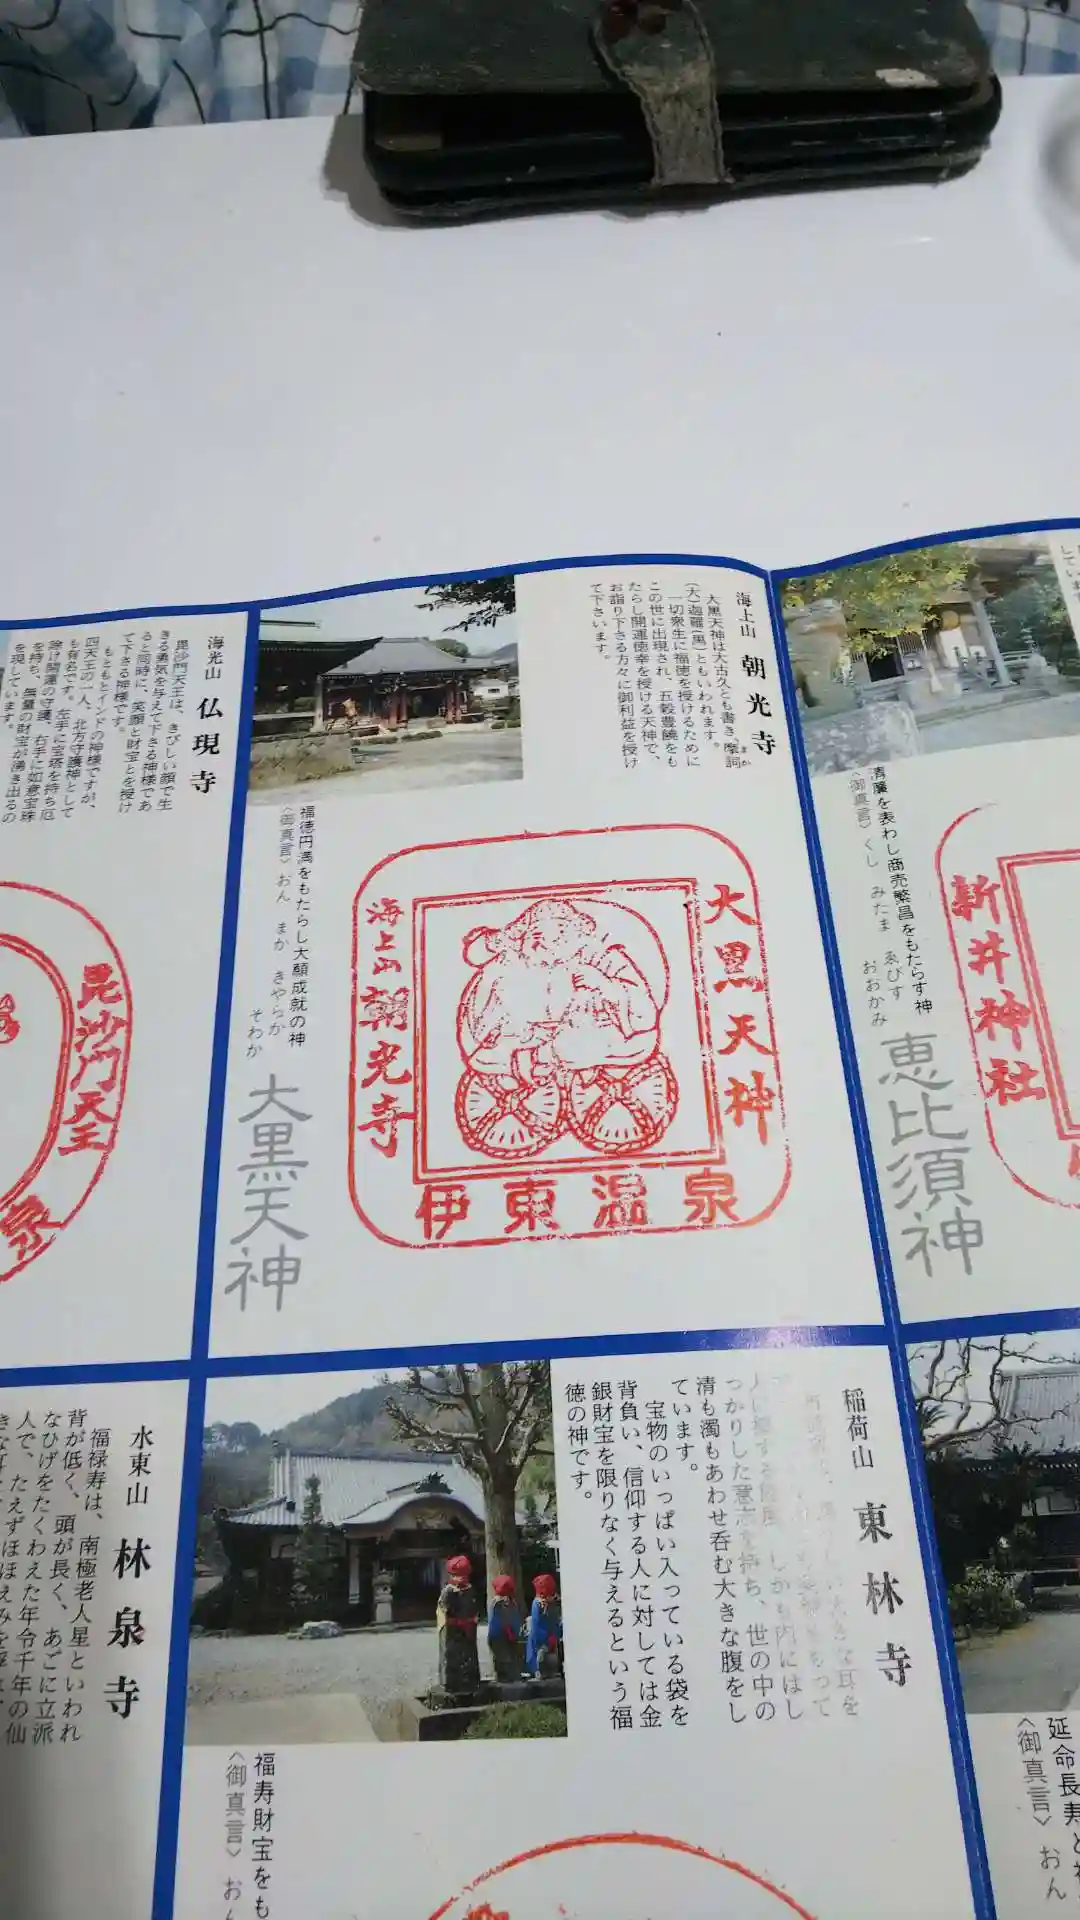 していま
清廉を表わし商売繁昌をもたらす神
〈御真言〉くし みたま ゑびす
おおかみ
恵比須神
新井神社
海上山 朝光寺
大黒天神は大古久とも書き、摩訶
まか
(大)迦羅(黒)ともいわれます。
一切衆生に福徳を授けるために
この世に出現され、五穀豊饒をも
たらし開運徳幸を授ける天神で、
お詣り下さる方々に御利益を授け
て下さいます。
福徳円満をもたらし大願成就の神
〈御真言〉おん まか きゃらか
そわか
大黒天神
大黒天神
海上山朝光寺
伊東温泉
海光山 仏現寺
毘沙門天王は、きびしい顔で生
きる勇気を与えて下さる神様であ
ると同時に、笑顔と財宝とを授け
て下さる神様です。
もともとインドの神様ですが、
四天王の一人、北方守護神として
も有名です。左手に宝塔を持ち厄
除け開運の守護、右手に如意宝珠
を持ち、無量の財宝が湧き出るの
を現しています。
毘沙門天王
延命長寿と
〈御真言〉おん
稲荷山 東林寺
きな耳を
もって
しかも内にはし
っかりした意志を持ち、世の中の
清も濁もあわせ呑む大きな腹をし
ています。
宝物のいっぱい入っている袋を
背負い、信仰する人に対しては金
銀財宝を限りなく与えるという福
徳の神です。
福寿財宝をも
〈御真言〉おん
水東山 林泉寺
福禄寿は、南極老人星といわれ
背が低く、頭が長く、あごに立派
なひげをたくわえた年令千年の仙
人で、たえずほほえみを